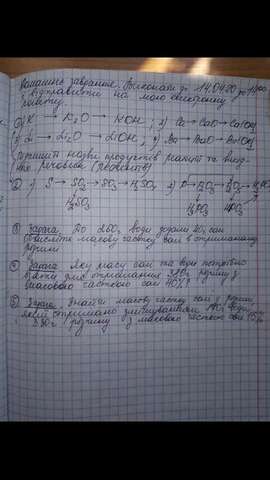 Домашнє завдання. Виконати до 14.04.20 до 17:00
і відправити на мою електронну
пошту.
① 1) K → K₂O → KOH; 2) Ca → CaO → Ca(OH)₂
3) Li → Li₂O → LiOH; 4) Ba → BaO → Ba(OH)₂
назви продуктів реакції та
речовин
② 1) S → SO₂ → SO₃ → H₂SO₄ 2) P → P₂O₃ → P₂O₅ → H₃PO₄
H₂SO₃ H₃PO₃ HPO₃
③ Задача. До 260г води додали 20г солі.
Обчисліть масову частку солі в отриманому
розчині.
④ Задача. Яку масу солі та води потрібно
взяти для отримання розчину з
масовою часткою солі 40%?
⑤ Задача. Знайти масову частку солі у розчині,
який отримано змішуванням води
розчину з масовою часткою солі 15%